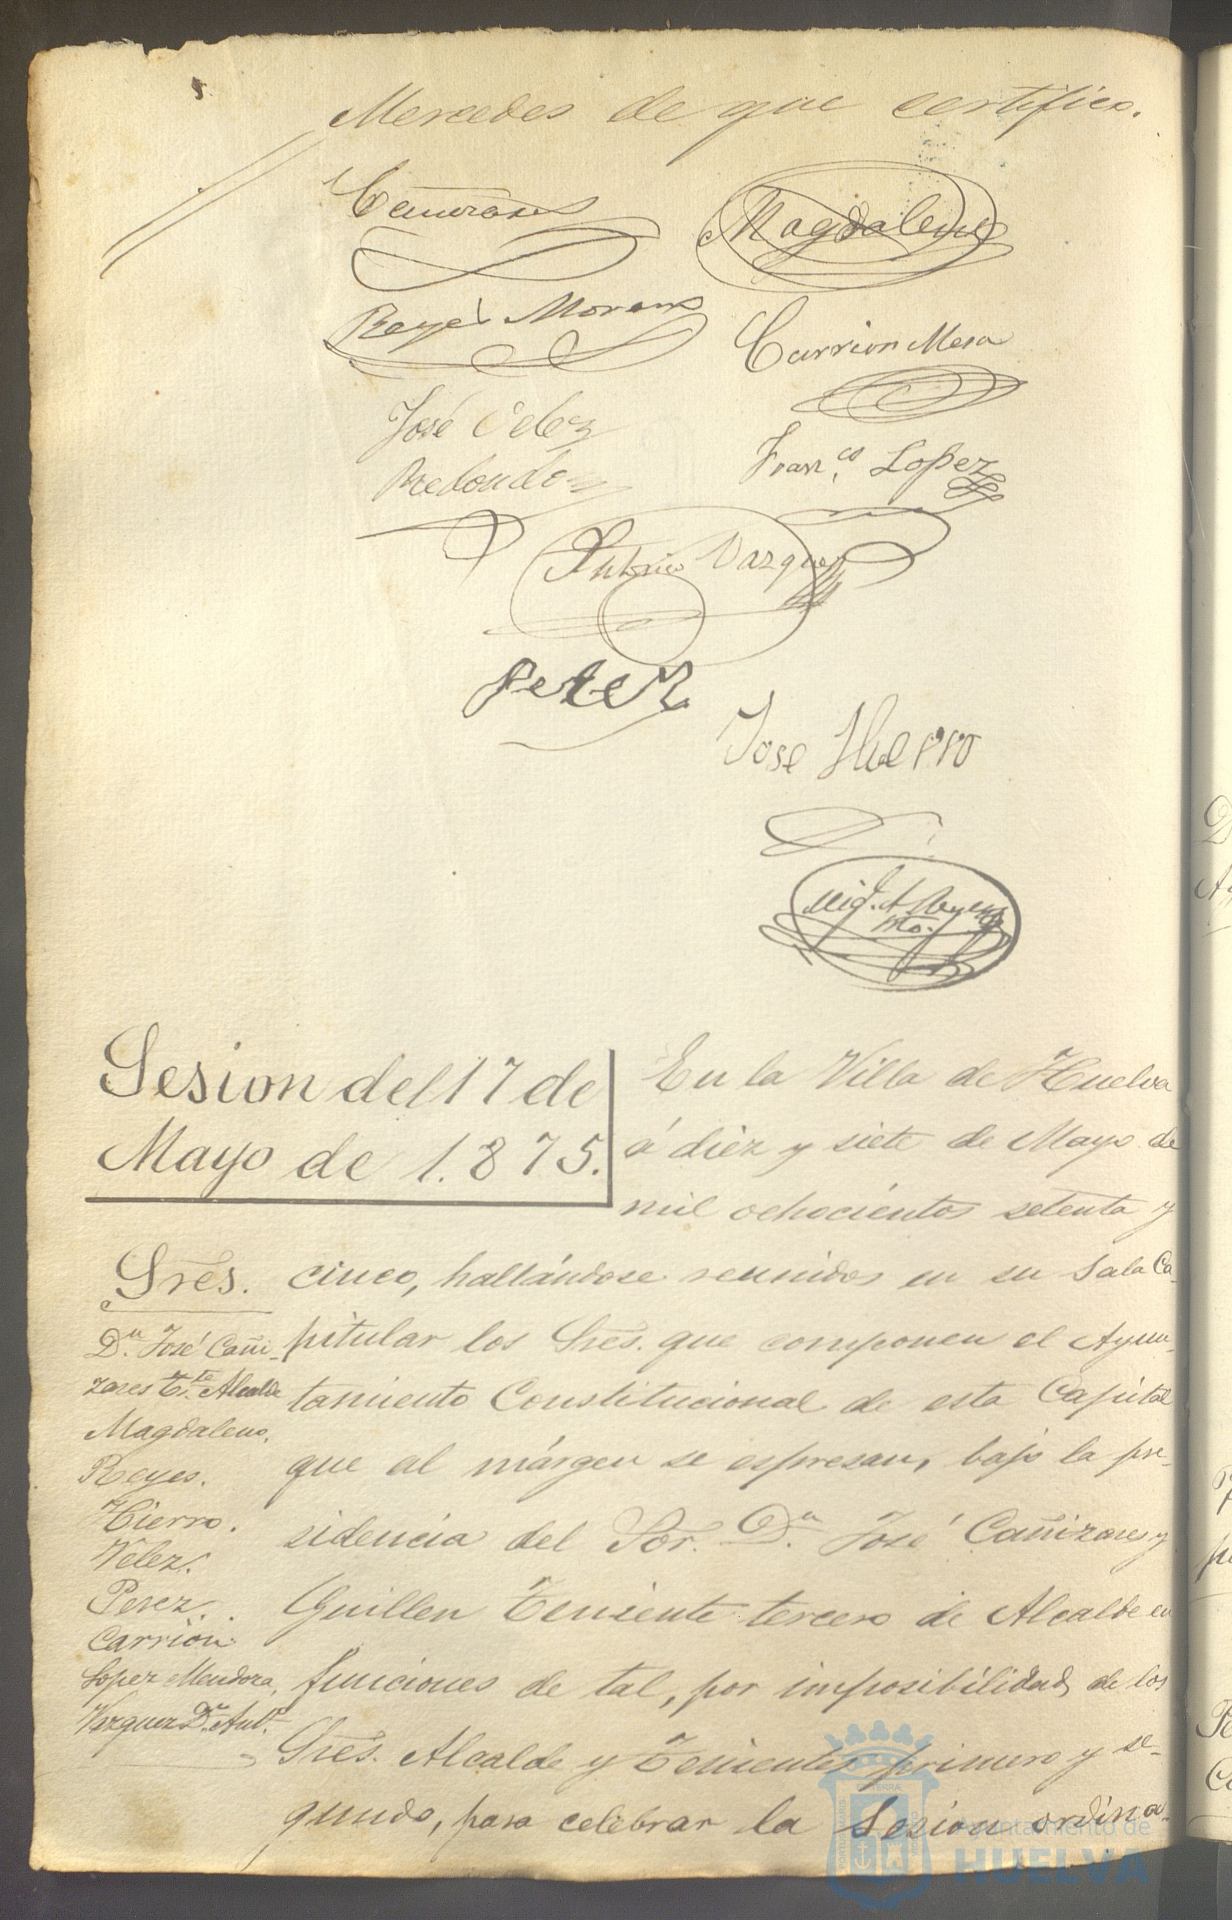 Mercedes de que certifico.
Cañizares
Magdaleno
Reyes Moreno
Carrion Mesa
José Velez
Redondo
Fran.co Lopez
Antonio Vazquez
Perez
Jose Hierro
Sesion del 17 de
Mayo de 1.875.
En la Villa de Huelva
á diez y siete de Mayo de
mil ochocientos setenta y
cinco, hallándose reunidos en su Sala Ca-
pitular los Sres. que componen el Ayun-
tamiento Constitucional de esta Capital
que al márgen se espresan, bajo la pre-
sidencia del Sor. Dn. José Cañizares y
Guillen Teniente tercero de Alcalde en
funciones de tal, por imposibilidad de los
Sres. Alcalde y Tenientes primero y se-
gundo, para celebrar la Sesion ordina-
Sres.
Dn. José Cañi-
zares Te. Alcalde
Magdaleno.
Reyes.
Hierro.
Velez.
Perez.
Carrion.
Lopez Mendoza,
Vazquez Dn. Ant.
Ayuntamiento de
HUELVA